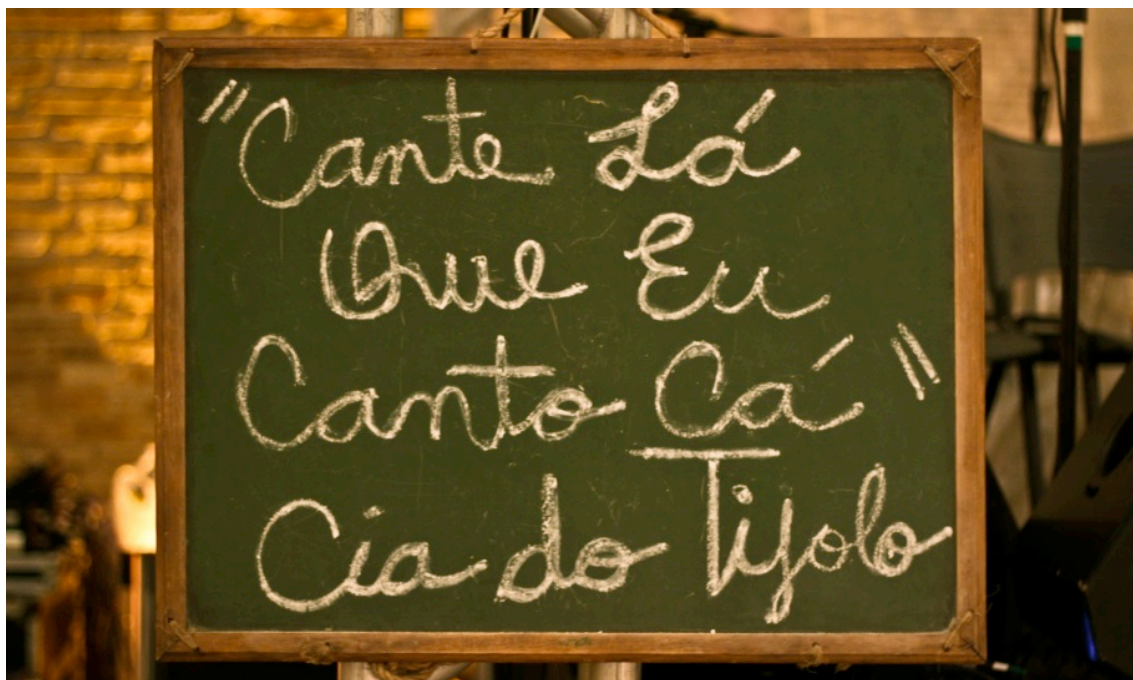 "Cante Lá
Que Eu
Canto Cá"
Cia do Tijolo